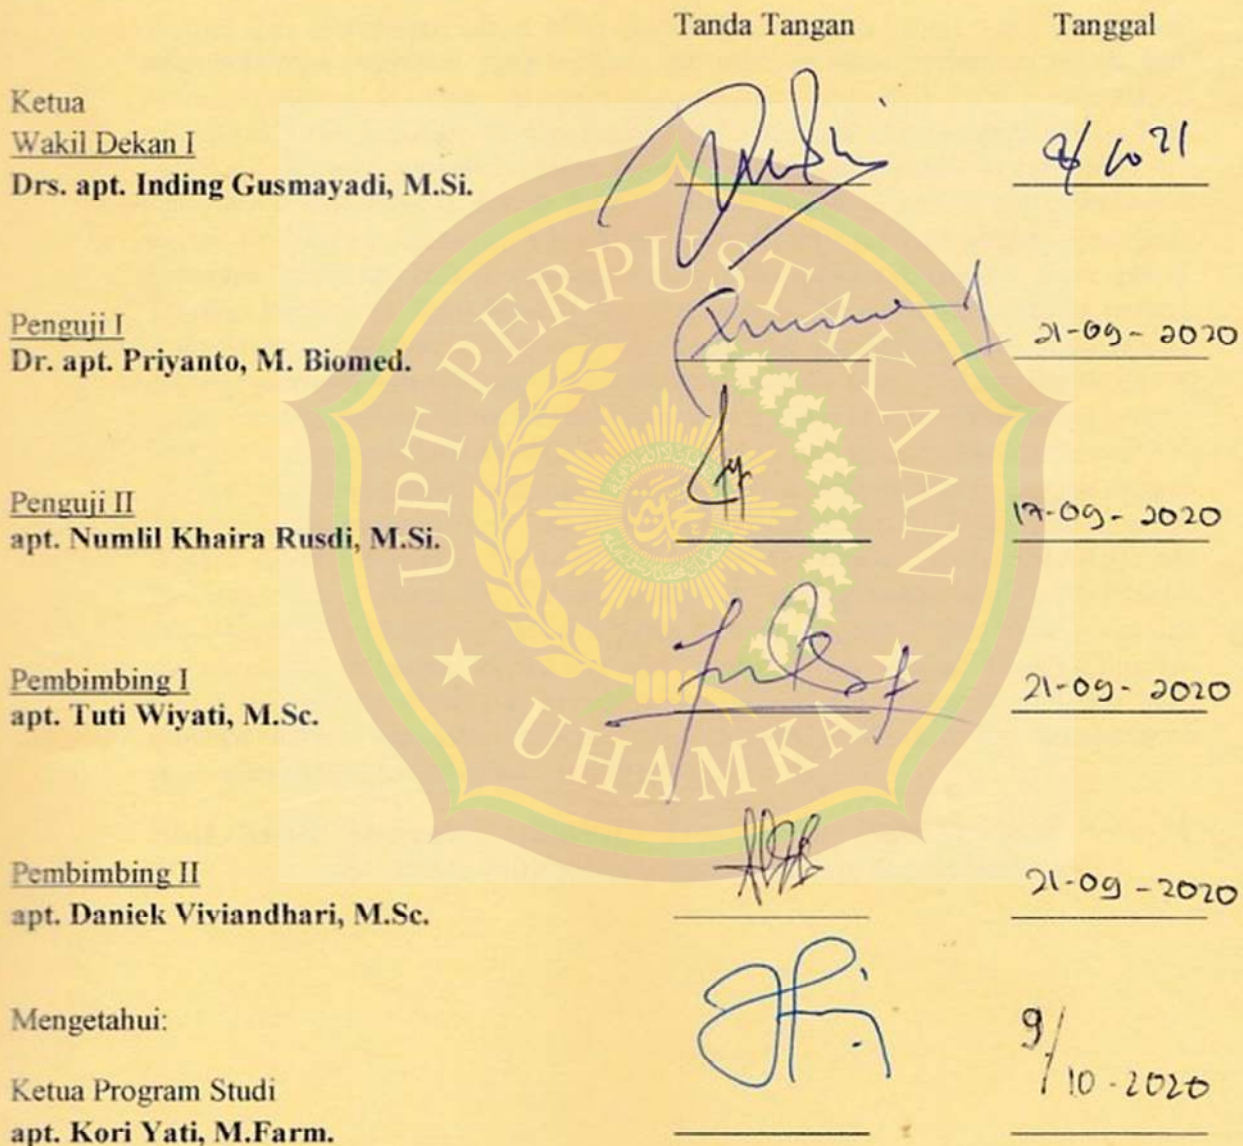 Tanda Tangan Tanggal
Ketua
Wakil Dekan I
Drs. apt. Inding Gusmayadi, M.Si.
Penguji I
Dr. apt. Priyanto, M. Biomed.
21-09-2020
Penguji II
apt. Numlil Khaira Rusdi, M.Si.
17-09-2020
Pembimbing I
apt. Tuti Wiyati, M.Sc.
21-09-2020
Pembimbing II
apt. Daniek Viviandhari, M.Sc.
21-09-2020
Mengetahui:
9/10-2020
Ketua Program Studi
apt. Kori Yati, M.Farm.
UPT PERPUSTAKAAN
UHAMKA